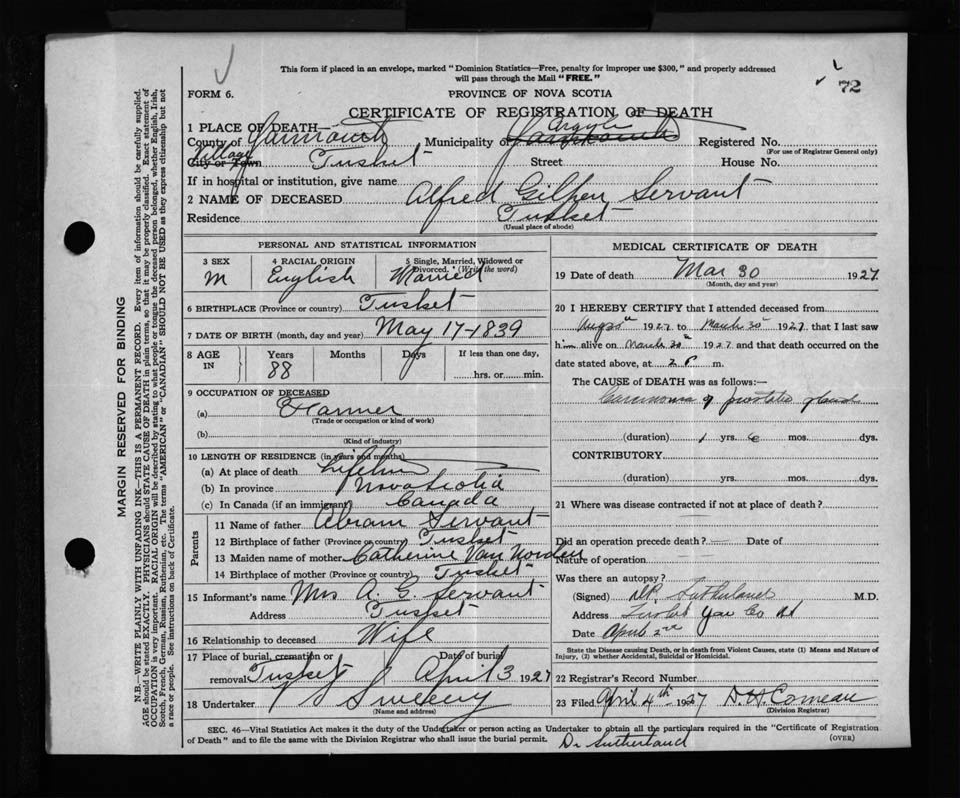 This form if placed in an envelope, marked "Dominion Statistics—Free, penalty for improper use $300," and properly addressed
will pass through the Mail "FREE."
72
FORM 6.
PROVINCE OF NOVA SCOTIA
CERTIFICATE OF REGISTRATION OF DEATH
1 PLACE OF DEATH—
County of Yarmouth Municipality of Argyle Yarmouth Registered No.
(For use of Registrar General only)
Village City or Town Tusket Street House No.
If in hospital or institution, give name
2 NAME OF DECEASED Alfred Gilpen Servant
Residence Tusket
(Usual place of abode)
PERSONAL AND STATISTICAL INFORMATION
3 SEX 4 RACIAL ORIGIN 5 Single, Married, Widowed or Divorced. (Write the word)
M English Married
6 BIRTHPLACE (Province or country) Tusket
7 DATE OF BIRTH (month, day and year) May 17-1839
8 AGE IN Years Months Days If less than one day,
88 hrs. or min.
9 OCCUPATION OF DECEASED
(a) Farmer
(Trade or occupation or kind of work)
(b)
(Kind of industry)
10 LENGTH OF RESIDENCE (in years and months)
(a) At place of death Lifetime
(b) In province Nova Scotia
(c) In Canada (if an immigrant) Canada
Parents
11 Name of father Abram Servant
12 Birthplace of father (Province or country) Tusket
13 Maiden name of mother Catherine Van Norden
14 Birthplace of mother (Province or country) Tusket
15 Informant's name Mrs A. G. Servant
Address Tusket
16 Relationship to deceased Wife
17 Place of burial, cremation or removal Tusket Date of burial April 3 1927
18 Undertaker Sweeny
(Name and address)
MEDICAL CERTIFICATE OF DEATH
19 Date of death Mar 30 1927
(Month, day and year)
20 I HEREBY CERTIFY that I attended deceased from
1927 to March 30 1927, that I last saw
him alive on March 30 1927 and that death occurred on the
date stated above, at 2 P m.
The CAUSE of DEATH was as follows:—
Carcinoma of prostate gland
(duration) 1 yrs. 6 mos. dys.
CONTRIBUTORY
(duration) yrs. mos. dys.
21 Where was disease contracted if not at place of death?
Did an operation precede death? Date of
Nature of operation
Was there an autopsy?
(Signed) Sutherland M.D.
Address Tusket Yar Co NS
Date April 2nd
State the Disease causing Death, or in death from Violent Causes, state (1) Means and Nature of
Injury, (2) whether Accidental, Suicidal or Homicidal.
22 Registrar's Record Number
23 Filed April 4th 1927 D. H. Comeau
(Division Registrar)
SEC. 46—Vital Statistics Act makes it the duty of the Undertaker or person acting as Undertaker to obtain all the particulars required in the "Certificate of Registration
of Death" and to file the same with the Division Registrar who shall issue the burial permit.
Dr Sutherland
(OVER)
MARGIN RESERVED FOR BINDING
N.B.—WRITE PLAINLY WITH UNFADING INK—THIS IS A PERMANENT RECORD. Every item of information should be carefully supplied.
AGE should be stated EXACTLY. PHYSICIANS should STATE CAUSE OF DEATH in plain terms, so that it may be properly classified. Exact statement of
OCCUPATION is very important. RACIAL ORIGIN will be described by stating to what people or tongue the deceased person belonged, whether English, Irish,
Scotch, French, German, Russian, Ruthenian, etc. The terms "AMERICAN" or "CANADIAN" SHOULD NOT BE USED as they express citizenship but not
a race or people. See instructions on back of Certificate.